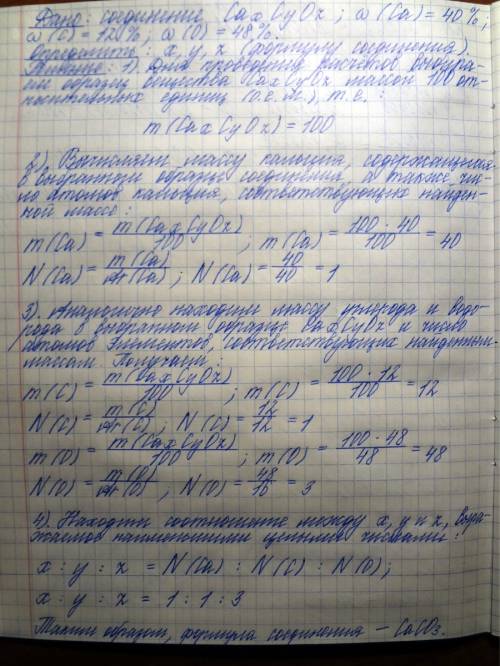 Дано: соединение CaxCyOz; ω(Ca) = 40%;
ω(C) = 12%; ω(O) = 48%.
Определить: x, y, z (формулу соединения).
Решение: 1). Для проведения расчётов выбира-
ем образец вещества CaxCyOz массой 100 от-
носительных единиц (о.е.м.), т.е.:
m(CaxCyOz) = 100
2). Вычисляем массу кальция, содержащегося
в выбранном образце соединения, а также чис-
ло атомов кальция, соответствующих найден-
ной массе:
m(Ca) = m(CaxCyOz)/100 ; m(Ca) = 100 · 40/100 = 40
N(Ca) = m(Ca)/Ar(Ca) ; N(Ca) = 40/40 = 1
3). Аналогично находим массу углерода и водо-
рода в выбранном образце CaxCyOz и число
атомов элементов, соответствующих найденным
массам. Получаем:
m(C) = m(CaxCyOz)/100 ; m(C) = 100 · 12/100 = 12
N(C) = m(C)/Ar(C) ; N(C) = 12/12 = 1
m(O) = m(CaxCyOz)/100 ; m(O) = 100 · 48/48 = 48
N(O) = m(O)/Ar(O) ; N(O) = 48/16 = 3
4). Находим соотношение между x, y и z, выра-
жаемое наименьшими целыми числами:
x : y : z = N(Ca) : N(C) : N(O);
x : y : z = 1 : 1 : 3
Таким образом, формула соединения – CaCO3.